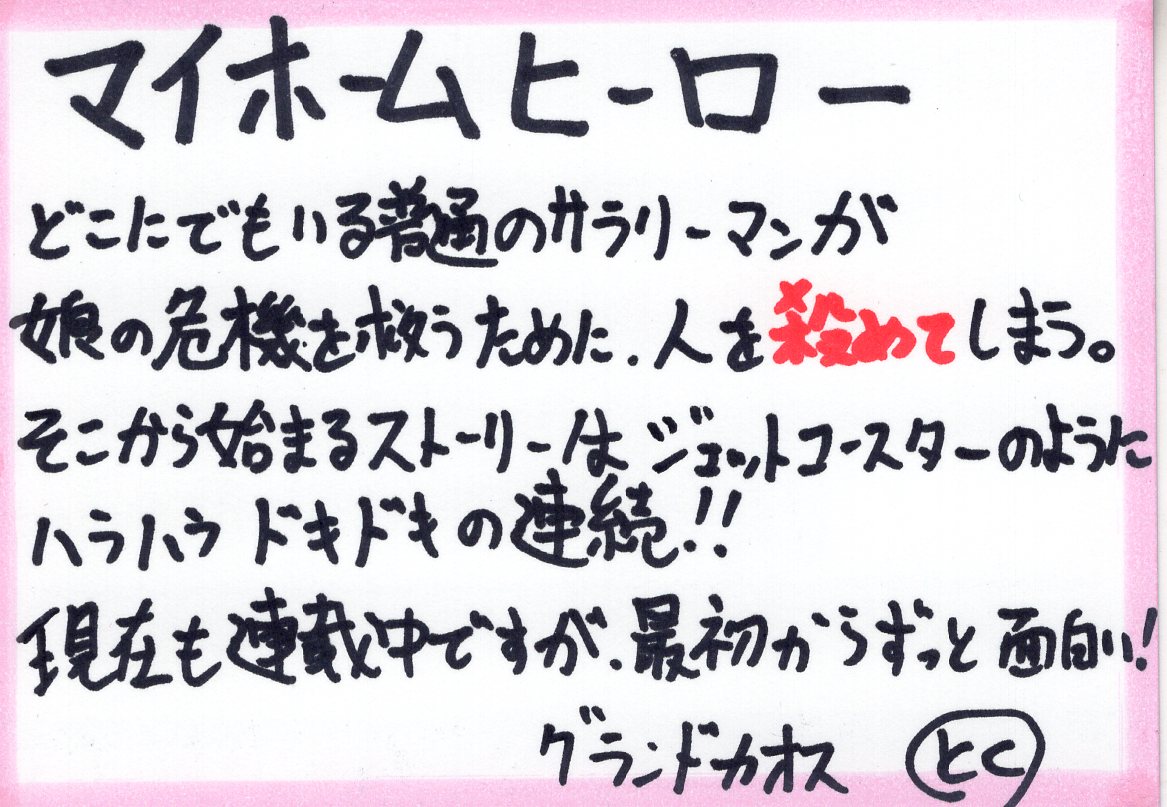 マイホームヒーロー
どこにでもいる普通のサラリーマンが
娘の危機を救うために、人を殺めてしまう。
そこから始まるストーリーはジェットコースターのように
ハラハラ ドキドキの連続!!
現在も連載中ですが、最初からずっと面白い!
グランドカオス とく